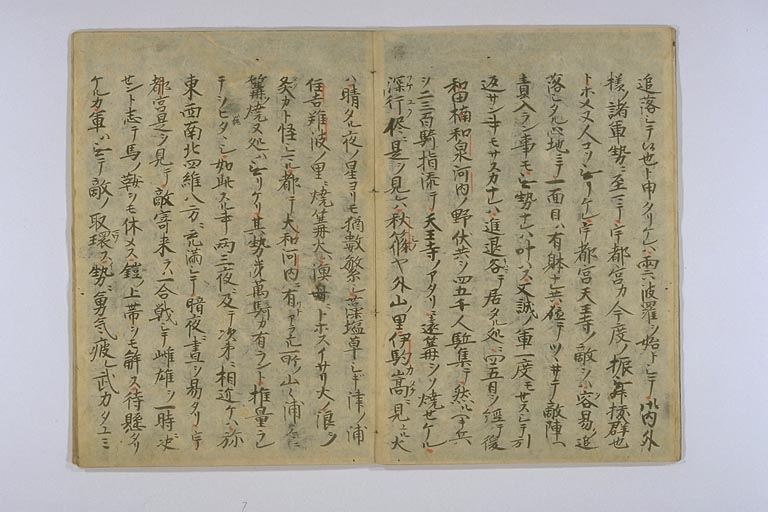 追落シテ候也ト申タリケレハ両六波羅ヲ始トシテ御内外
様ノ諸軍勢ニ至マテ宇都宮カ今度ノ振舞抜群也
トホメヌ人コソナカリケレ宇都宮天王寺ノ敵ヲハ容易ク追
落シタル心地ニテ一面目ハ有躰ナレ共ツヽヰテ敵陣ヘ
責入ラン事モ無勢ナレハ叶ハス又誠ノ軍一度モセスシテ引
返サン事モサスカナレハ進退谷テ居タル処ニ四五日ヲ經テ後
和田楠和泉河内ノ野伏共ヲ四五千人駈集テ然ルヘキ兵
ヲ二三百騎指添テ天王寺ノアタリニ遠篝ヲソ焼セケル
深行儘是ヲ見レハ秋篠ヤ外山ノ里伊駒嵩ニ見ユル火
ハ晴タル夜ノ星ヨリモ猶數繁シ藻塩草シギ津ノ浦
住吉難波ノ里ニ焼篝火ハ漁舟ニトホスイサリ火ノ浪ヲ
炙カト怪シマル都テ大和河内ニ有トアラユル所ノ山々浦々ニ
篝ヲ焼ヌ処ハナカリケリ其勢幾萬騎カ有ラント推量シ
テヲビタヽシ如此スル事両三夜ニ及テ次第ニ相近ケハ弥
東西南北四維八方ニ充満シテ暗夜ニ昼ヲ易タリ宇
都宮是ヲ見テ敵寄来ラハ一合戦シテ雌雄ヲ一時ニ決
セント志テ馬ノ鞍ヲモ休メス鎧ノ上帯ヲモ解ス待懸タリ
ケルカ軍ハナクシテ敵ノ取環ス勢ニ勇気疲レ武力タユミ